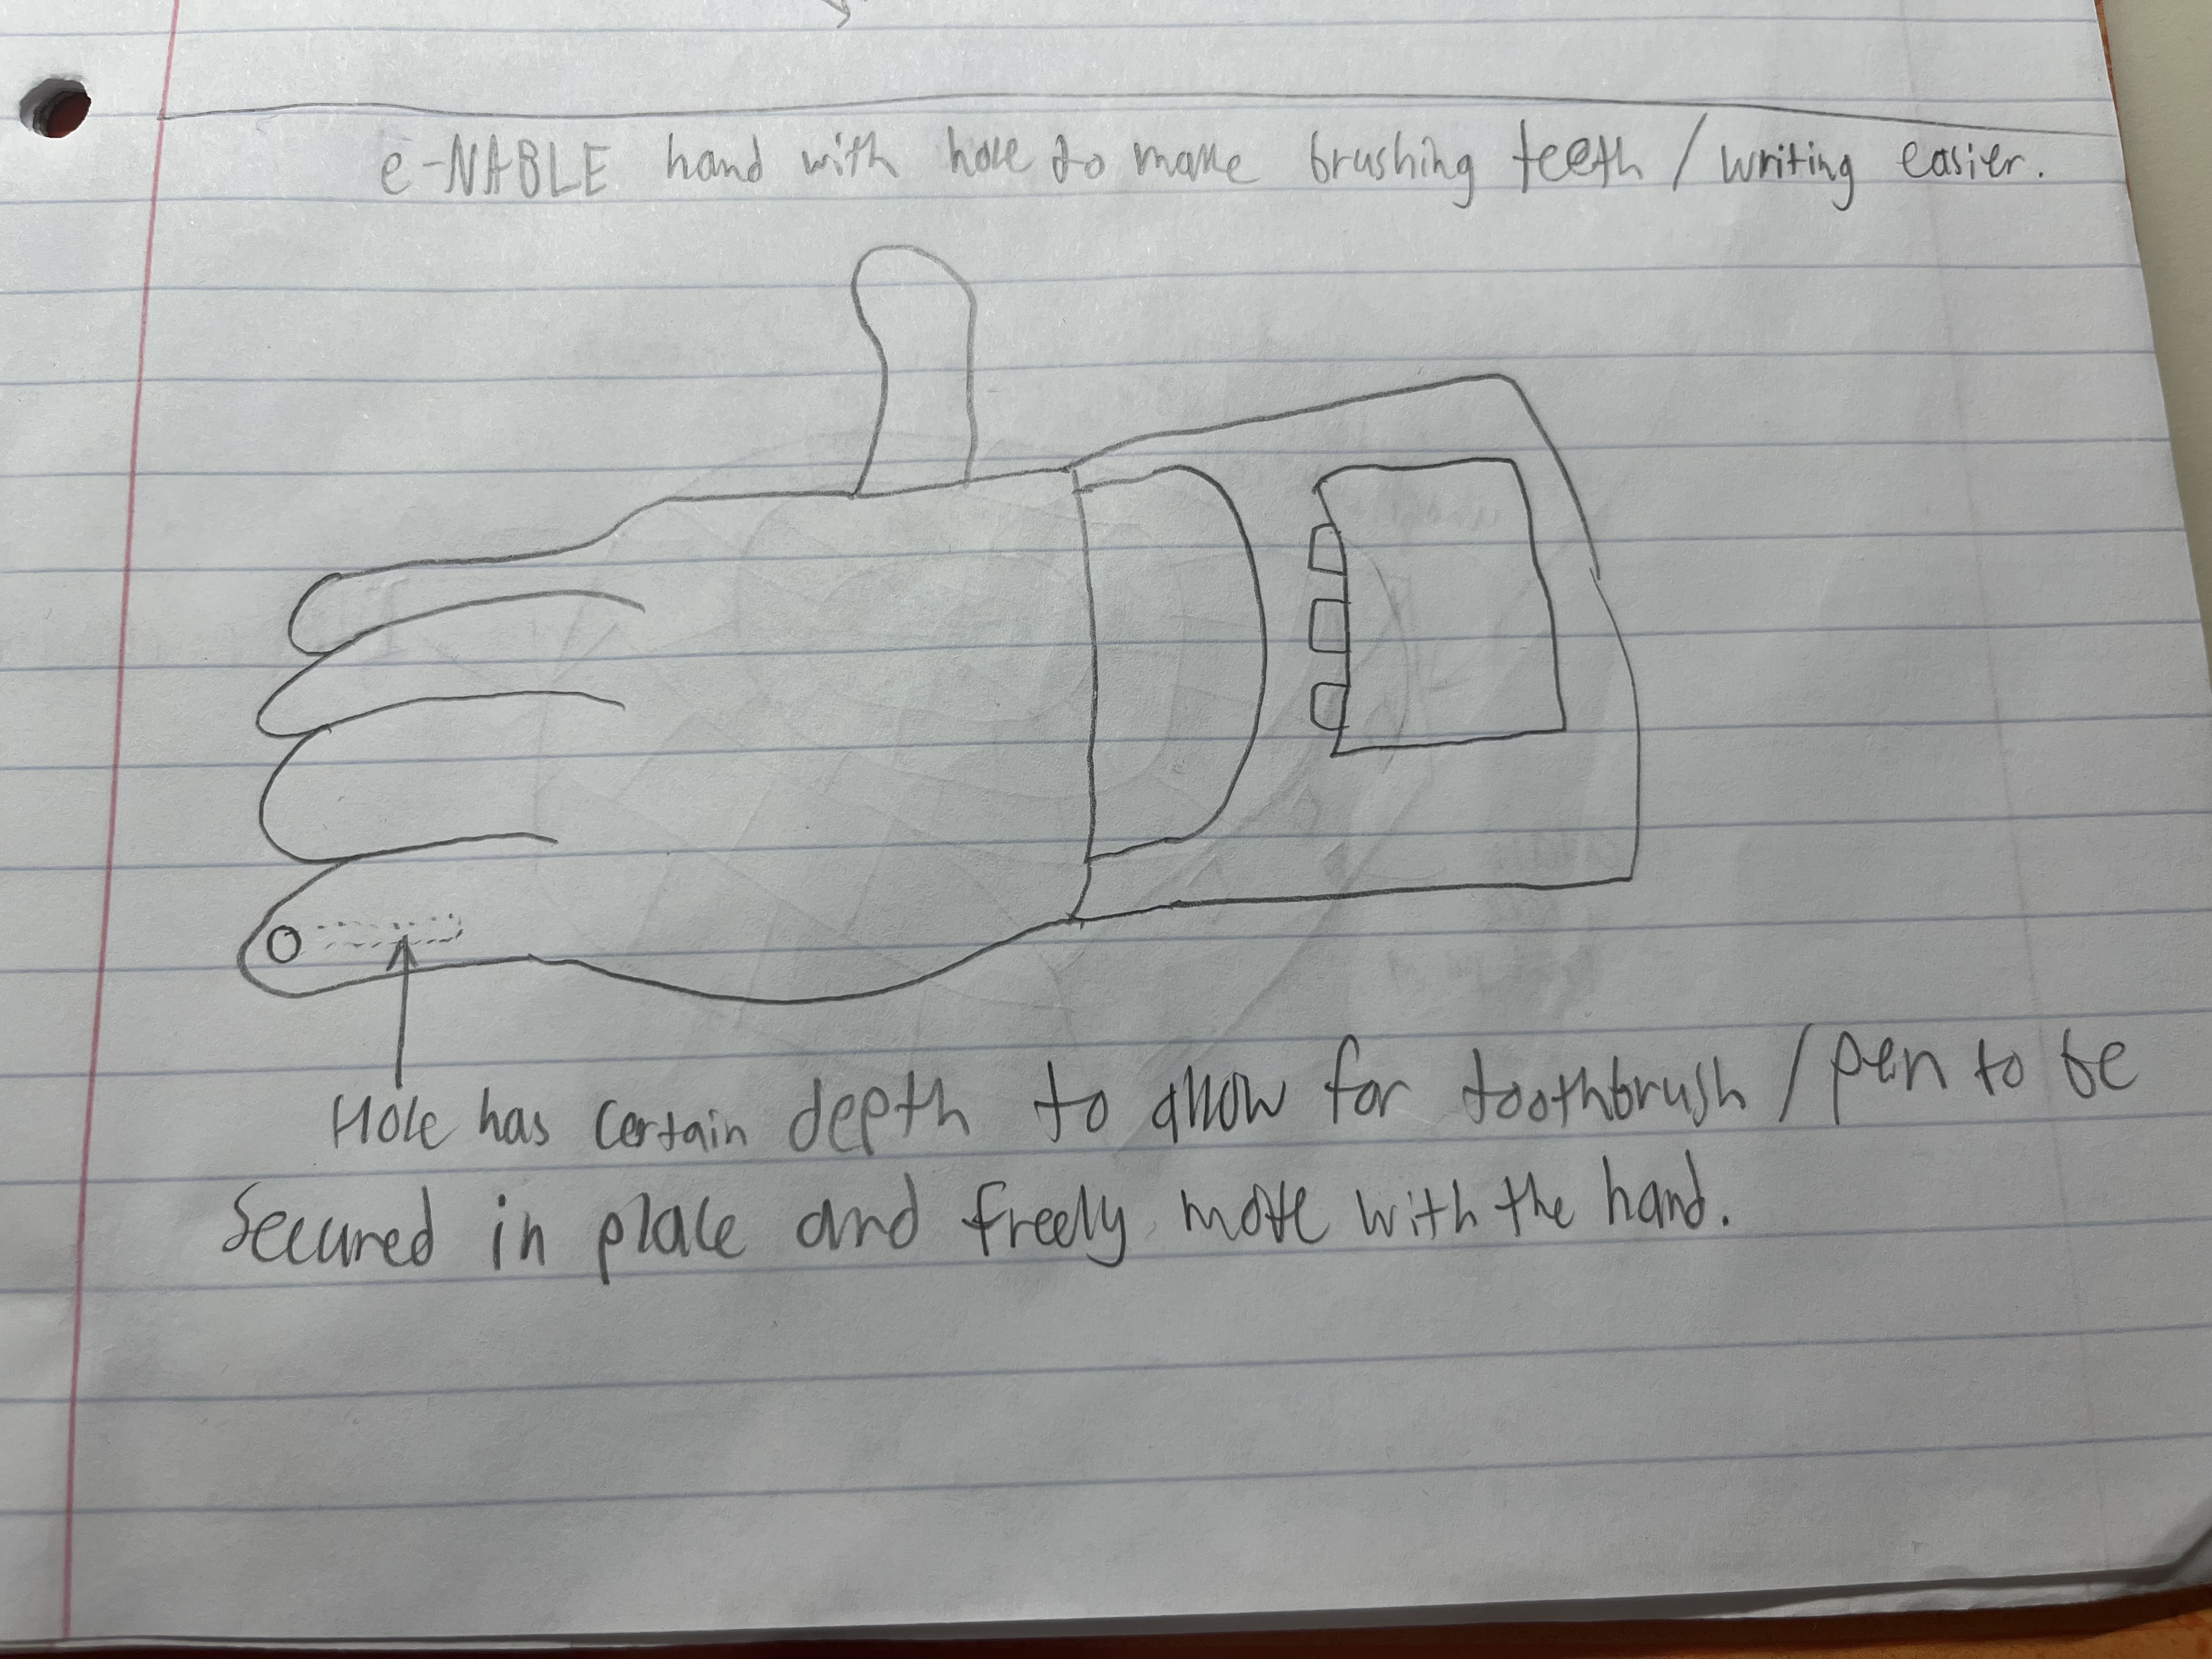 e-NABLE hand with hole to make brushing teeth / writing easier.
Hole has certain depth to allow for toothbrush / pen to be
secured in place and freely move with the hand.